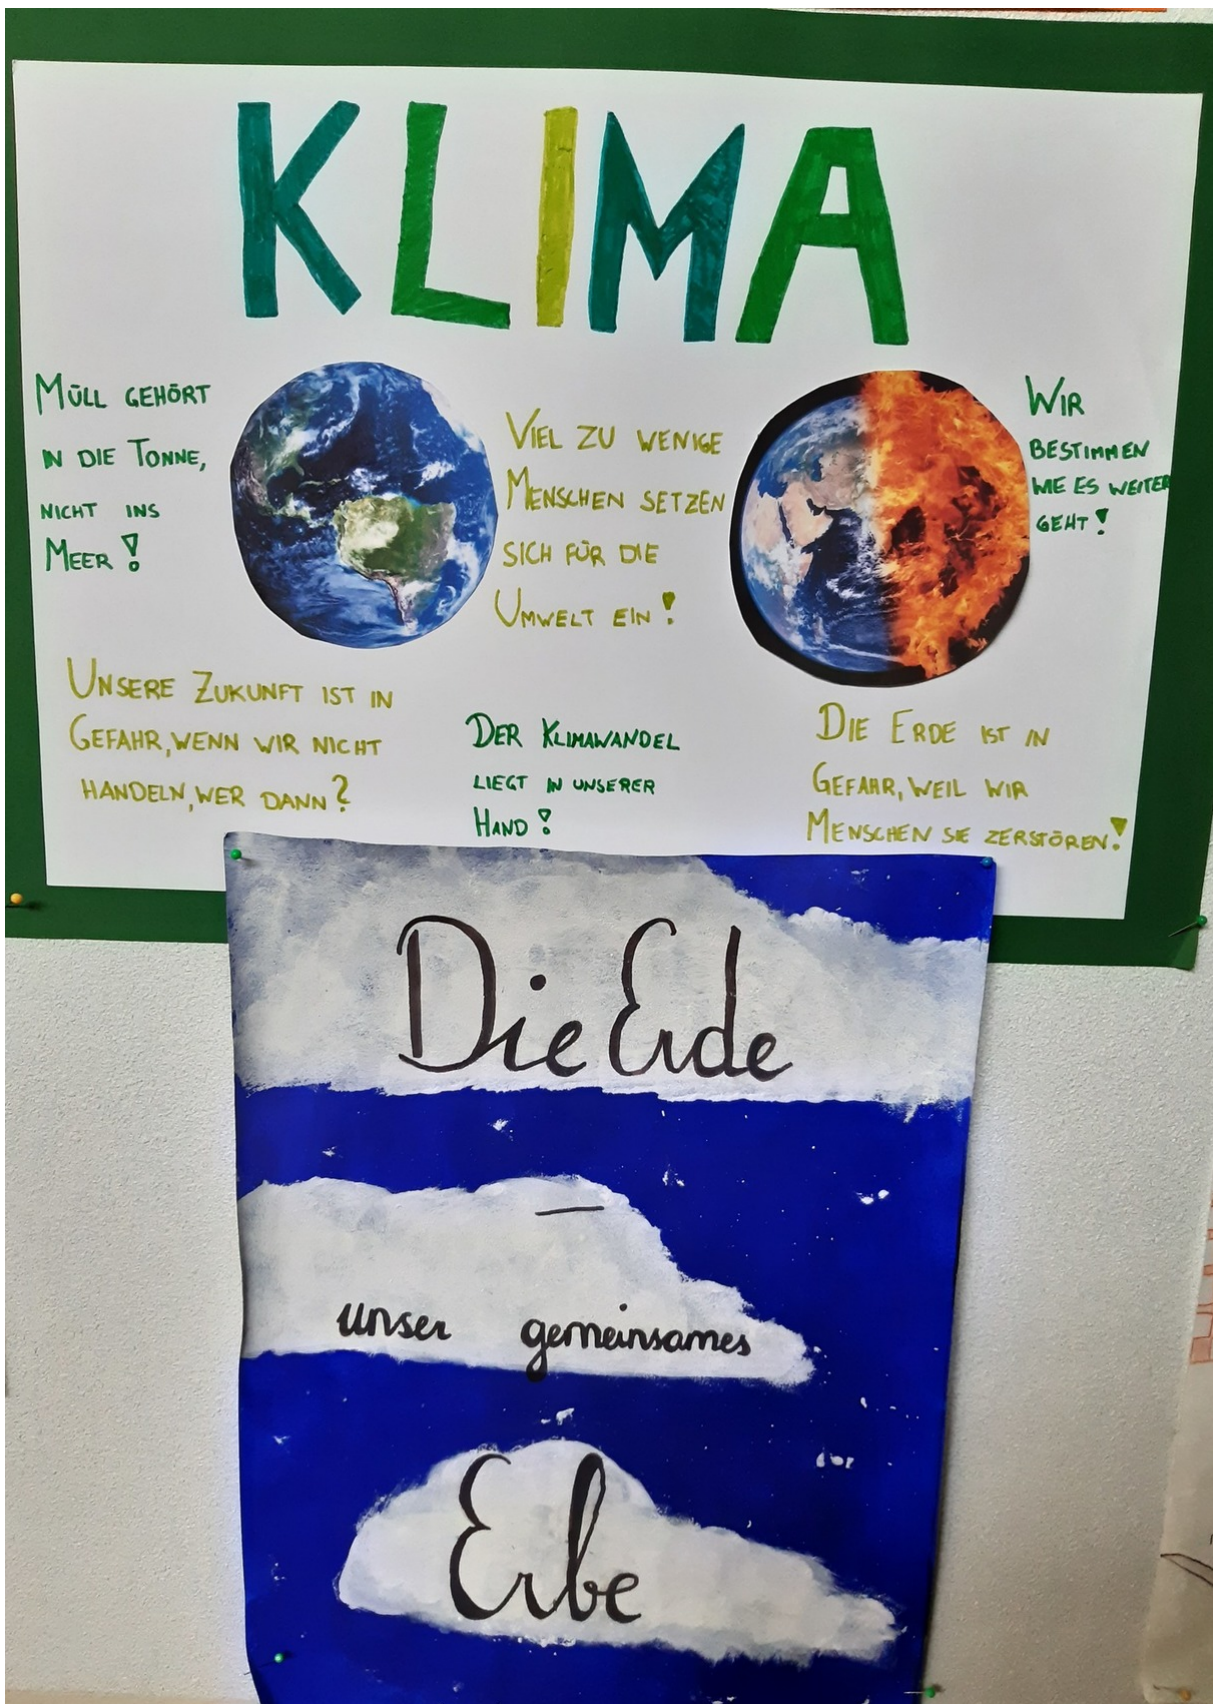 KLIMA
MÜLL GEHÖRT
IN DIE TONNE,
NICHT INS
MEER!
VIEL ZU WENIGE
MENSCHEN SETZEN
SICH FÜR DIE
UMWELT EIN!
WIR
BESTIMMEN
WIE ES WEITER
GEHT!
UNSERE ZUKUNFT IST IN
GEFAHR, WENN WIR NICHT
HANDELN, WER DANN?
DER KLIMAWANDEL
LIEGT IN UNSERER
HAND!
DIE ERDE IST IN
GEFAHR, WEIL WIR
MENSCHEN SIE ZERSTÖREN!
Die Erde
—
unser gemeinsames
Erbe